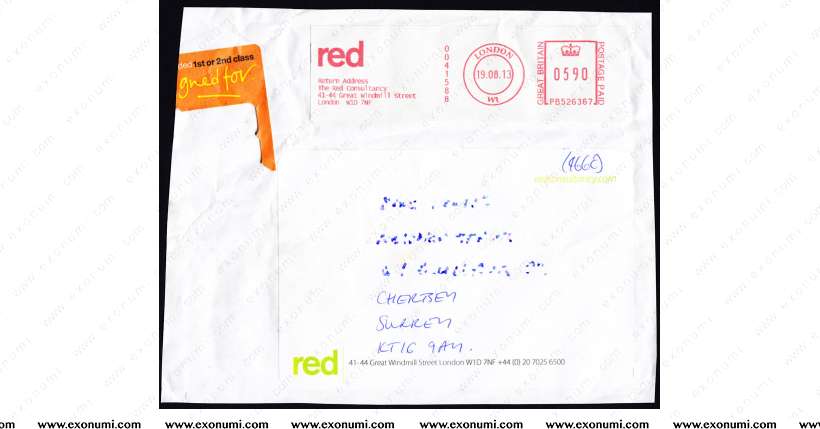 red
Return Address
The Red Consultancy
41-44 Great Windmill Street
London W1D 7NF
0041588
LONDON
19.08.13
W1
GREAT BRITAIN
0590
POSTAGE PAID
PB526367
1st or 2nd class
gned for
(466E)
redconsultancy.com
CHERTSEY
SURREY
KT16 9AY.
red
41-44 Great Windmill Street London W1D 7NF +44 (0) 20 7025 6500
www.exonumi.com www.exonumi.com www.exonumi.com www.exonumi.com www.exonumi.com www.exonumi.com